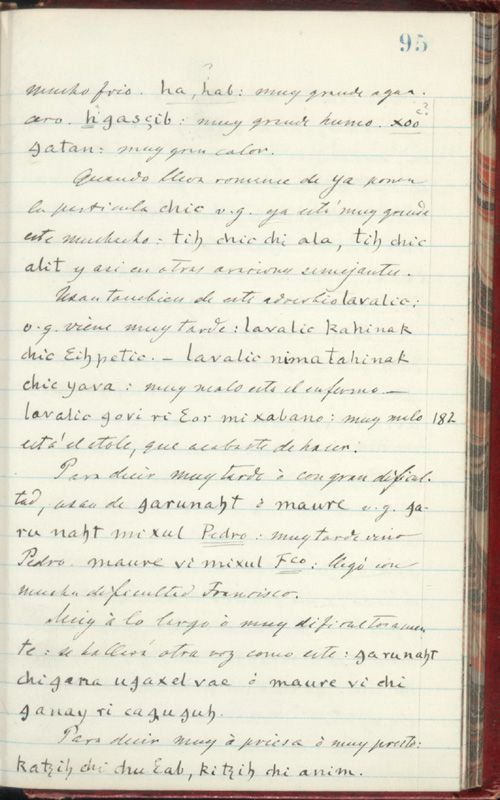 95
mucho frio. ha, hab: muy grande agua-
cero. h gasçib: muy grande humo. xoo
gatan: muy gran calor.
Quando lleva romance de ya ponen
la particula chic v.g. ya está muy grande
este muchacho: tih chic chi ala, tih chic
alit y asi en otras oraciones semejantes.
Usan tambien de este adverbio lavalic:
v.g. viene muy tarde: lavalic kahinak
chic Eihpetic. — lavalic nimatahinak
chic yava: muy malo esta el enfermo —
lavalic govi ri Eor mixabano: muy malo 182
está el atole, que acabaste de hacer.
Para decir muy tarde ò con gran dificul-
tad, usan de garunaht ò maure v.g. ga-
ru naht mixul Pedro: muy tarde vino
Pedro. maure vi mixul Fco: llegó con
mucha dificultad Francisco.
Muy à lo largo ò muy dificultosamen
te: se hallerá otra voz como este: garunaht
chi gana ugaxel vae ó maure vi chi
ganay ri caguguh.
Para decir muy à priesa ò muy presto:
katzih chi chu Eab, kitzih chi anim.